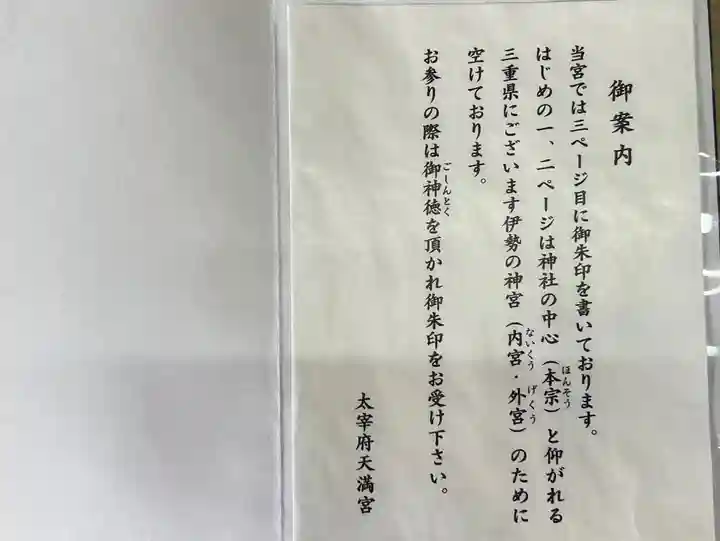 御案内
当宮では三ページ目に御朱印を書いております。
はじめの一、二ページは神社の中心(本宗)と仰がれる
ほんそう
三重県にございます伊勢の神宮(内宮・外宮)のために
ないくう げくう
空けております。
お参りの際は御神徳を頂かれ御朱印をお受け下さい。
ごしんとく
太宰府天満宮